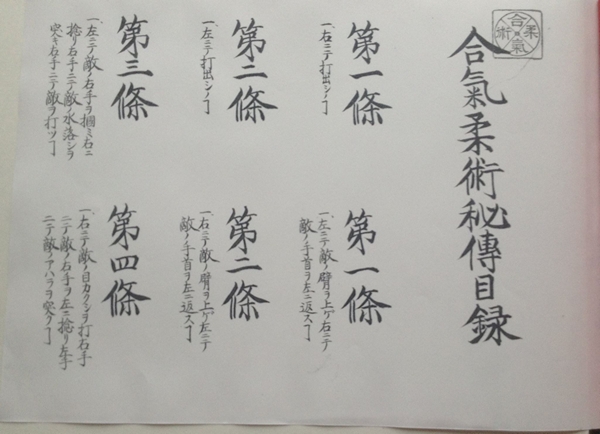 合氣柔術秘傳目録
第一條
一、右ニテ打出シノヿ
第二條
一、左ニテ打出シノヿ
第三條
一、左ニテ敵ノ右手ヲ掴ミ右ニ
捻リ右手ニテ敵ノ水落シヲ
突キ右手ニテ敵ヲ打ツヿ
第一條
一、左ニテ敵ノ臂ヲ上ゲ右ニテ
敵ノ手首ヲ左ニ返スヿ
第二條
一、右ニテ敵ノ臂ヲ上ゲ左ニテ
敵ノ手首ヲ左ニ返スヿ
第四條
一、右ニテ敵ノ目カクシヲ打右手
ニテ敵ノ右手ヲ左ニ捻リ左手
ニテ敵ノアバラヲ突クヿ